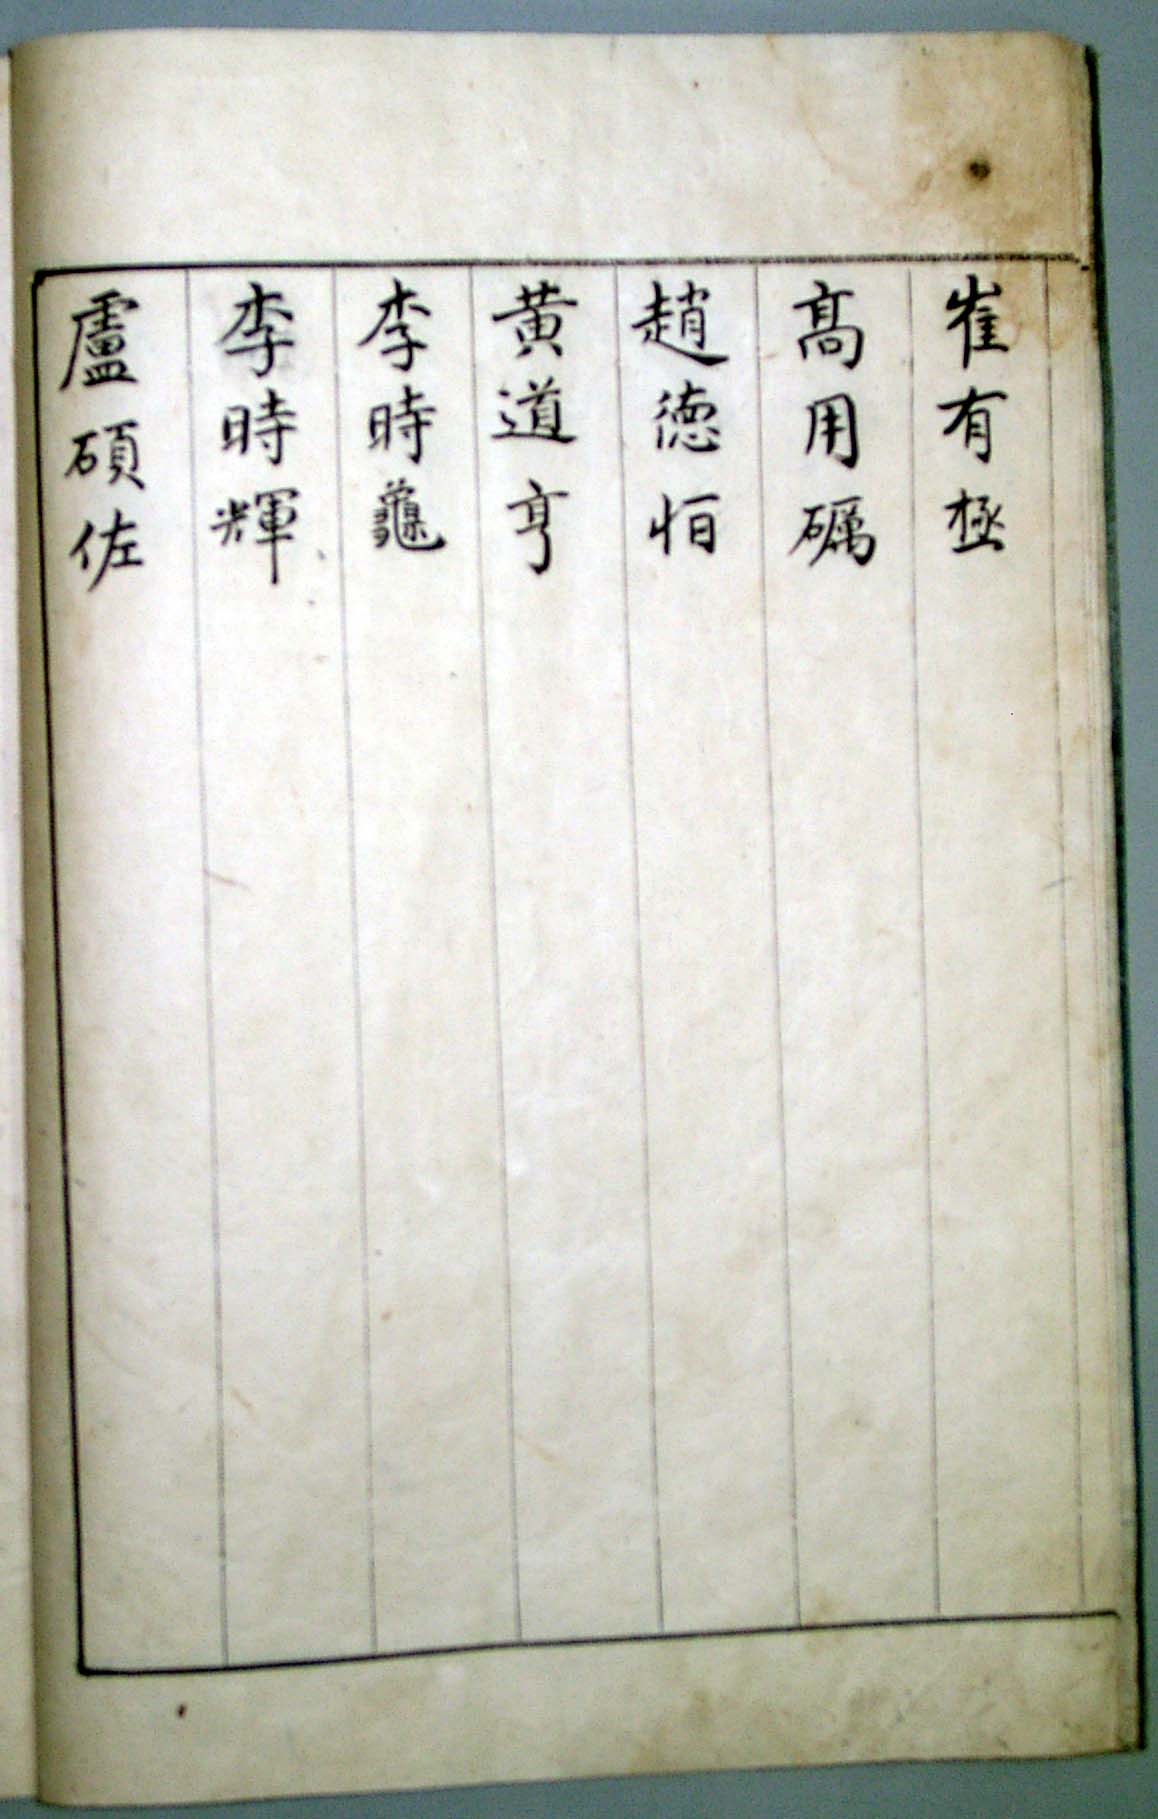 崔有極
高用礪
趙德恒
黃道亨
李時龜
李時輝
盧碩佐